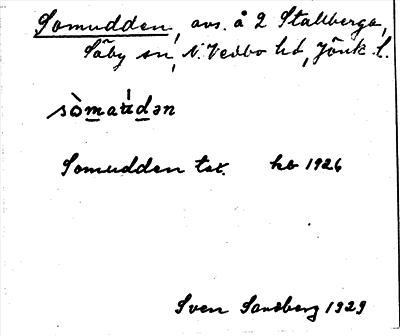 Somudden, avs. å 2 Stallberga,
Säby sn, N. Vedbo hd, Jönk. l.
sò̀maúdən
Somudden tax. hb 1926
Sven Sandberg 1929